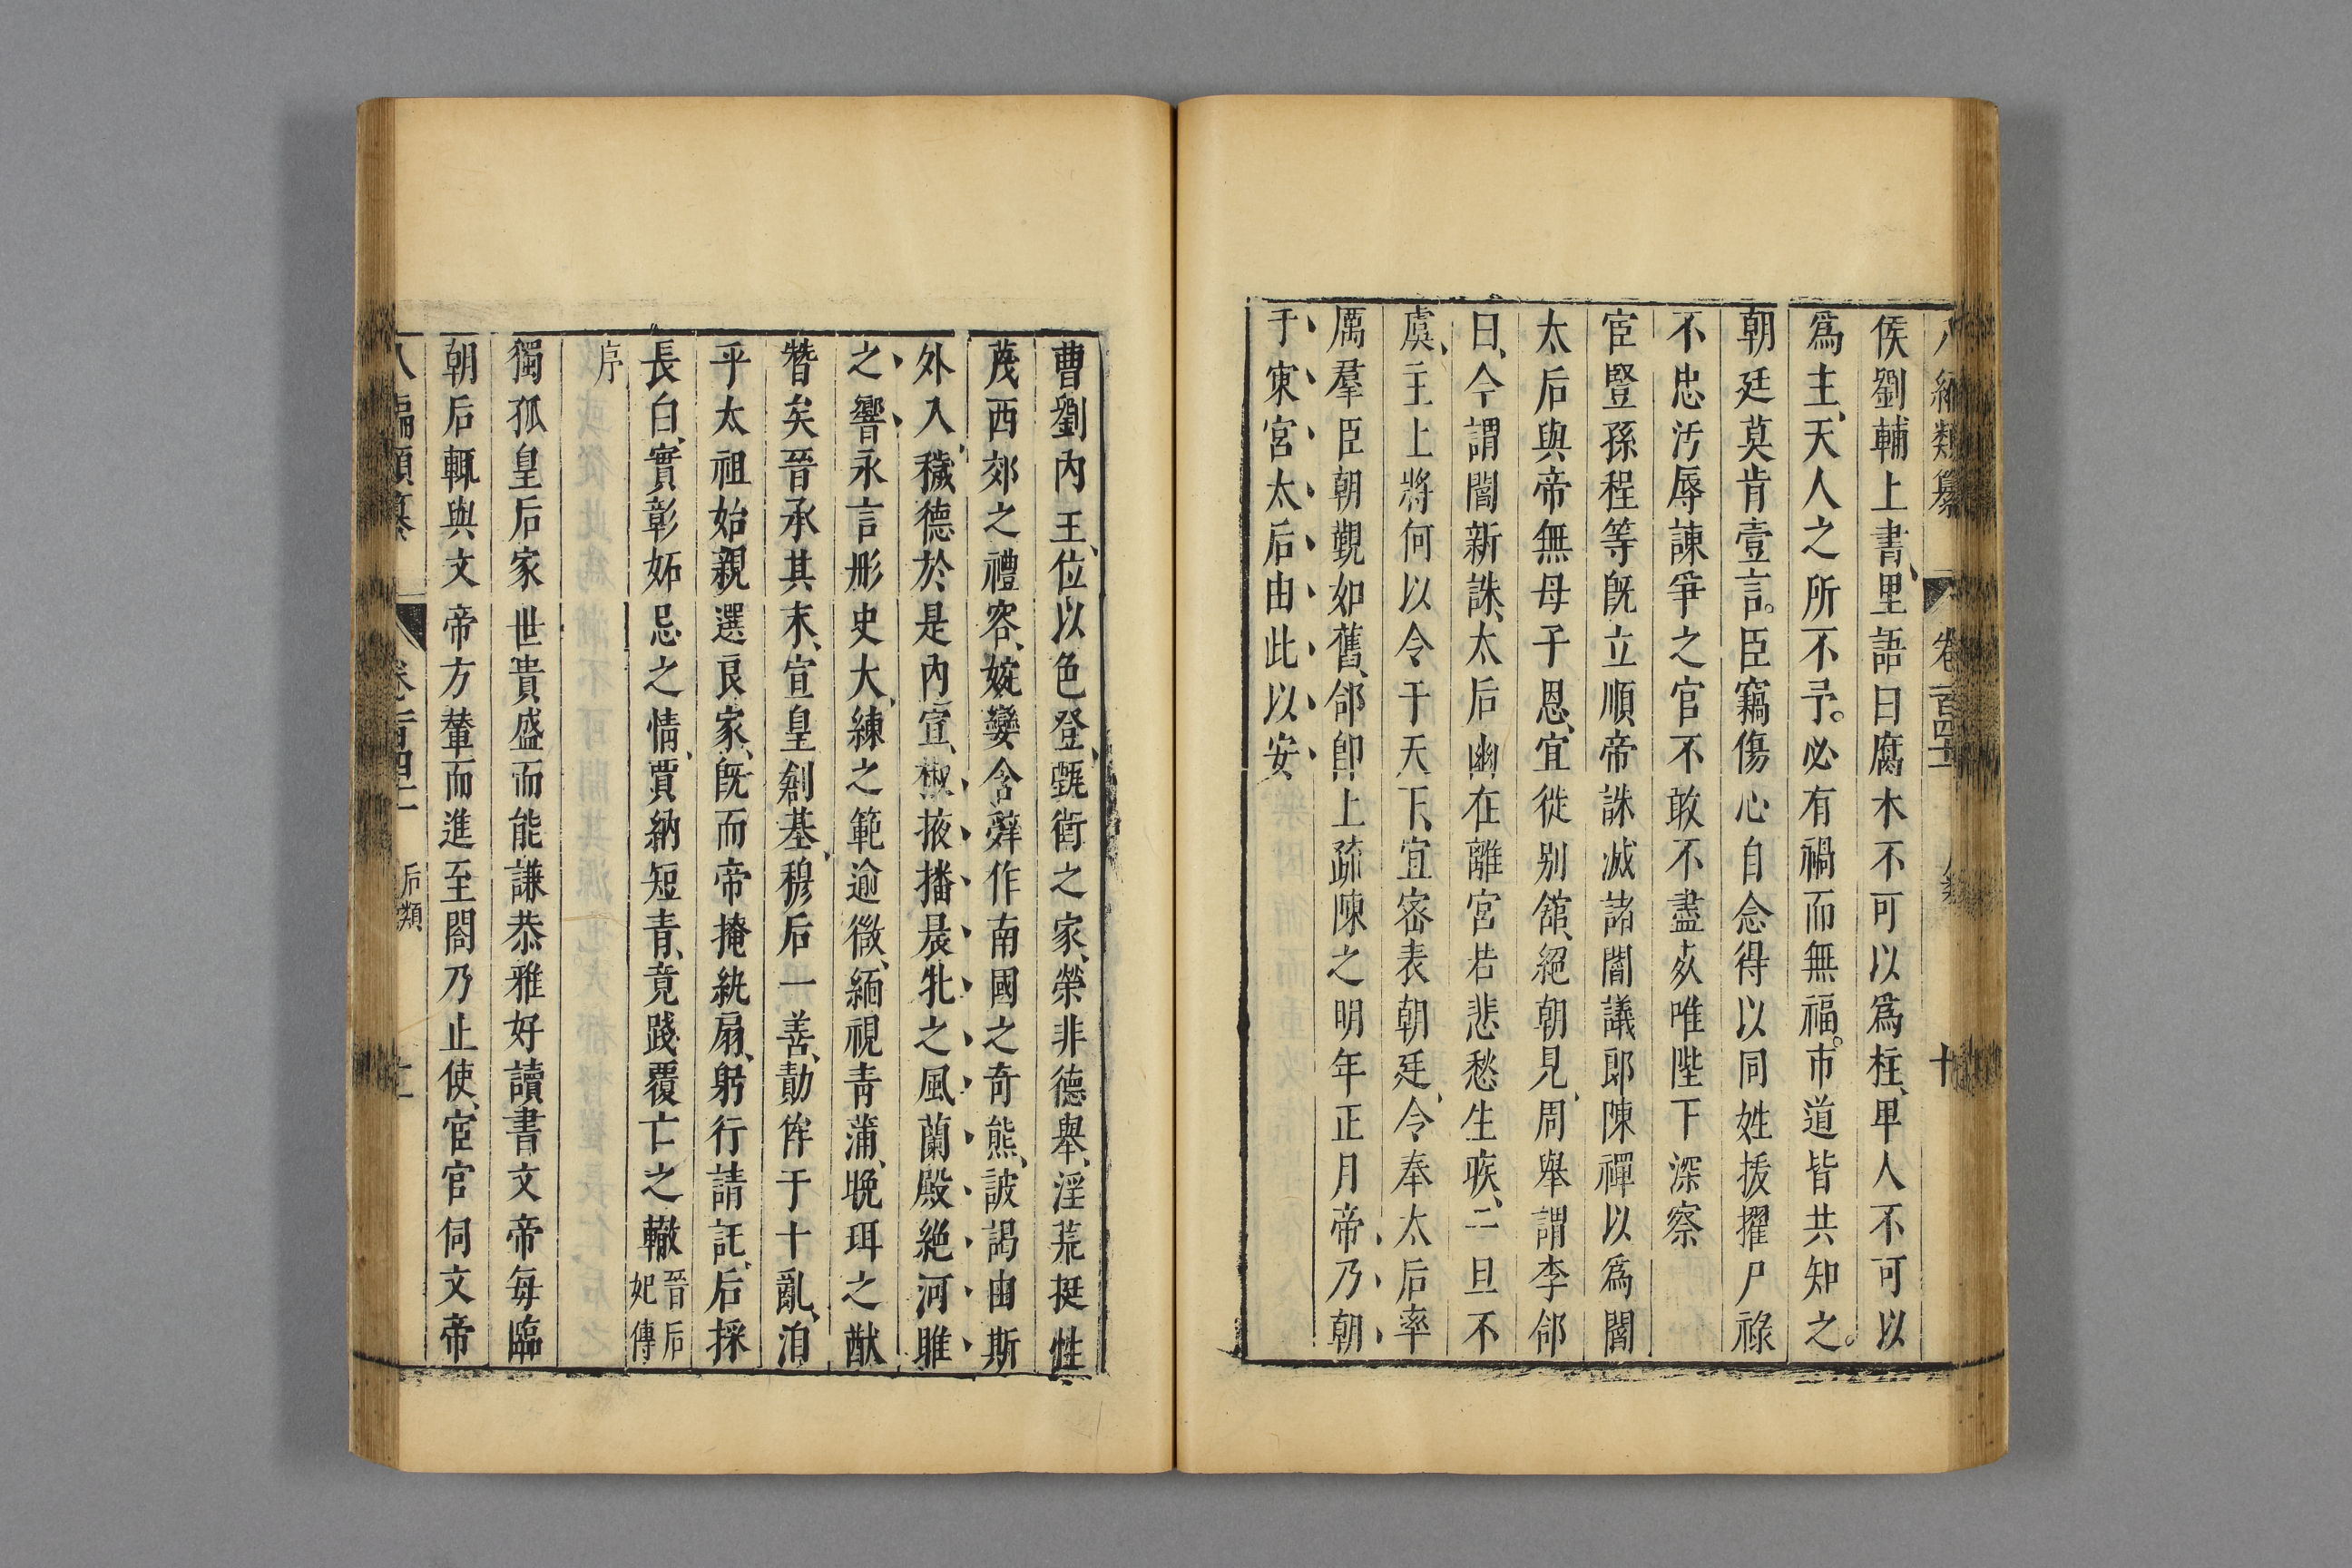 八編類纂 卷一百四十二 后類 十
侯劉輔上書、里語曰腐木不可以爲柱、卑人不可以
爲主、天人之所不予。必有禍而無福。市道皆共知之。
朝廷莫肯壹言。臣竊傷心自念得以同姓拔擢尸祿
不忠汚辱諫爭之官不敢不盡死唯陛下深察
宦豎孫程等旣立順帝誅滅諸閻議郎陳禪以爲閻
太后與帝無母子恩、宜徙別舘、絕朝見、周舉謂李郃
曰、今謂閻新誅、太后幽在離宮若悲愁生疾、一旦不
虞、主上將何以令于天下、宜密表朝廷、令奉太后率
厲羣臣朝覲如舊、郃卽上疏陳之明年正月帝乃朝
于東宮太后由此以安
曹劉內王、位以色登、甄衛之家、榮非德舉、淫荒挺性
茂西郊之禮容、婉孌含辭作南國之奇熊、詖謁由斯
外入、穢德於是內宣、椒掖播晨牝之風蘭殿絕河雎
之響永言彤史大練之範逾微、緬視青蒲、晚珥之猷
替矣晉承其末、宣皇創基、穆后一善、勣侔于十亂、洎
乎太祖始親選良家、旣而帝掩紈扇、躬行請託、后採
長白、實彰妬忌之情、賈納短青、竟踐覆亡之轍 晉后妃傳
序
獨孤皇后家世貴盛而能謙恭雅好讀書文帝每臨
朝后輒與文帝方輦而進至閤乃止使宦官伺文帝
八編類纂 卷一百四十二 后類 十一